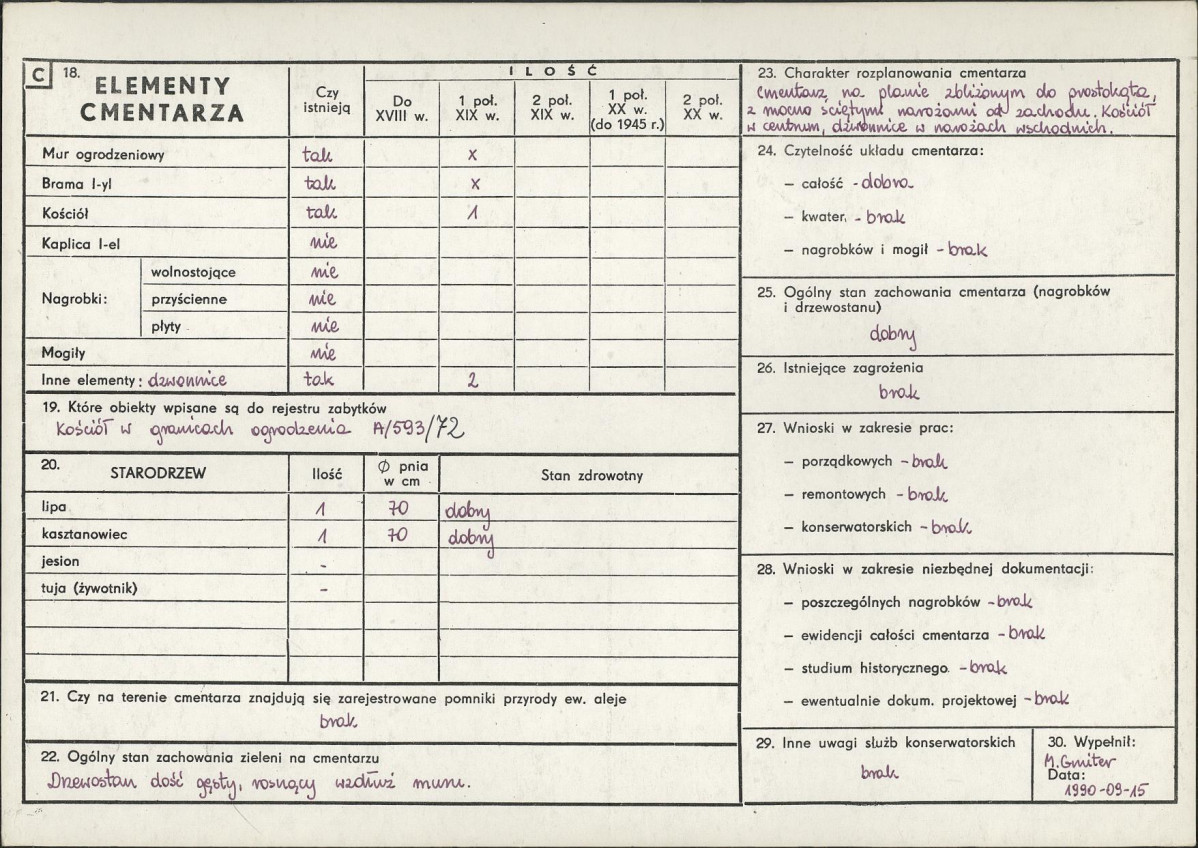 C 18. ELEMENTY CMENTARZA
Czy istnieją
ILOŚĆ
Do XVIII w.
1 poł. XIX w.
2 poł. XIX w.
1 poł. XX w. (do 1945 r.)
2 poł. XX w.
Mur ogrodzeniowy tak x
Brama I-yl tak x
Kościół tak 1
Kaplica I-el nie
Nagrobki: wolnostojące nie
przyścienne nie
płyty nie
Mogiły nie
Inne elementy: dzwonnice tak 2
19. Które obiekty wpisane są do rejestru zabytków
Kościół w granicach ogrodzenia A/593/72
20. STARODRZEW Ilość Ø pnia w cm Stan zdrowotny
lipa 1 70 dobry
kasztanowiec 1 70 dobry
jesion -
tuja (żywotnik) -
21. Czy na terenie cmentarza znajdują się zarejestrowane pomniki przyrody ew. aleje
brak
22. Ogólny stan zachowania zieleni na cmentarzu
Drzewostan dość gęsty, rosnący wzdłuż muru.
23. Charakter rozplanowania cmentarza
Cmentarz na planie zbliżonym do prostokąta,
z mocno ściętymi narożami od zachodu. Kościół
w centrum, dzwonnice w narożach wschodnich.
24. Czytelność układu cmentarza:
– całość - dobra
– kwater, - brak
– nagrobków i mogił - brak
25. Ogólny stan zachowania cmentarza (nagrobków
i drzewostanu)
dobry
26. Istniejące zagrożenia
brak
27. Wnioski w zakresie prac:
– porządkowych - brak
– remontowych - brak
– konserwatorskich - brak
28. Wnioski w zakresie niezbędnej dokumentacji:
– poszczególnych nagrobków - brak
– ewidencji całości cmentarza - brak
– studium historycznego. - brak
– ewentualnie dokum. projektowej - brak
29. Inne uwagi służb konserwatorskich
brak
30. Wypełnił:
M. Gmiter
Data:
1990-09-15